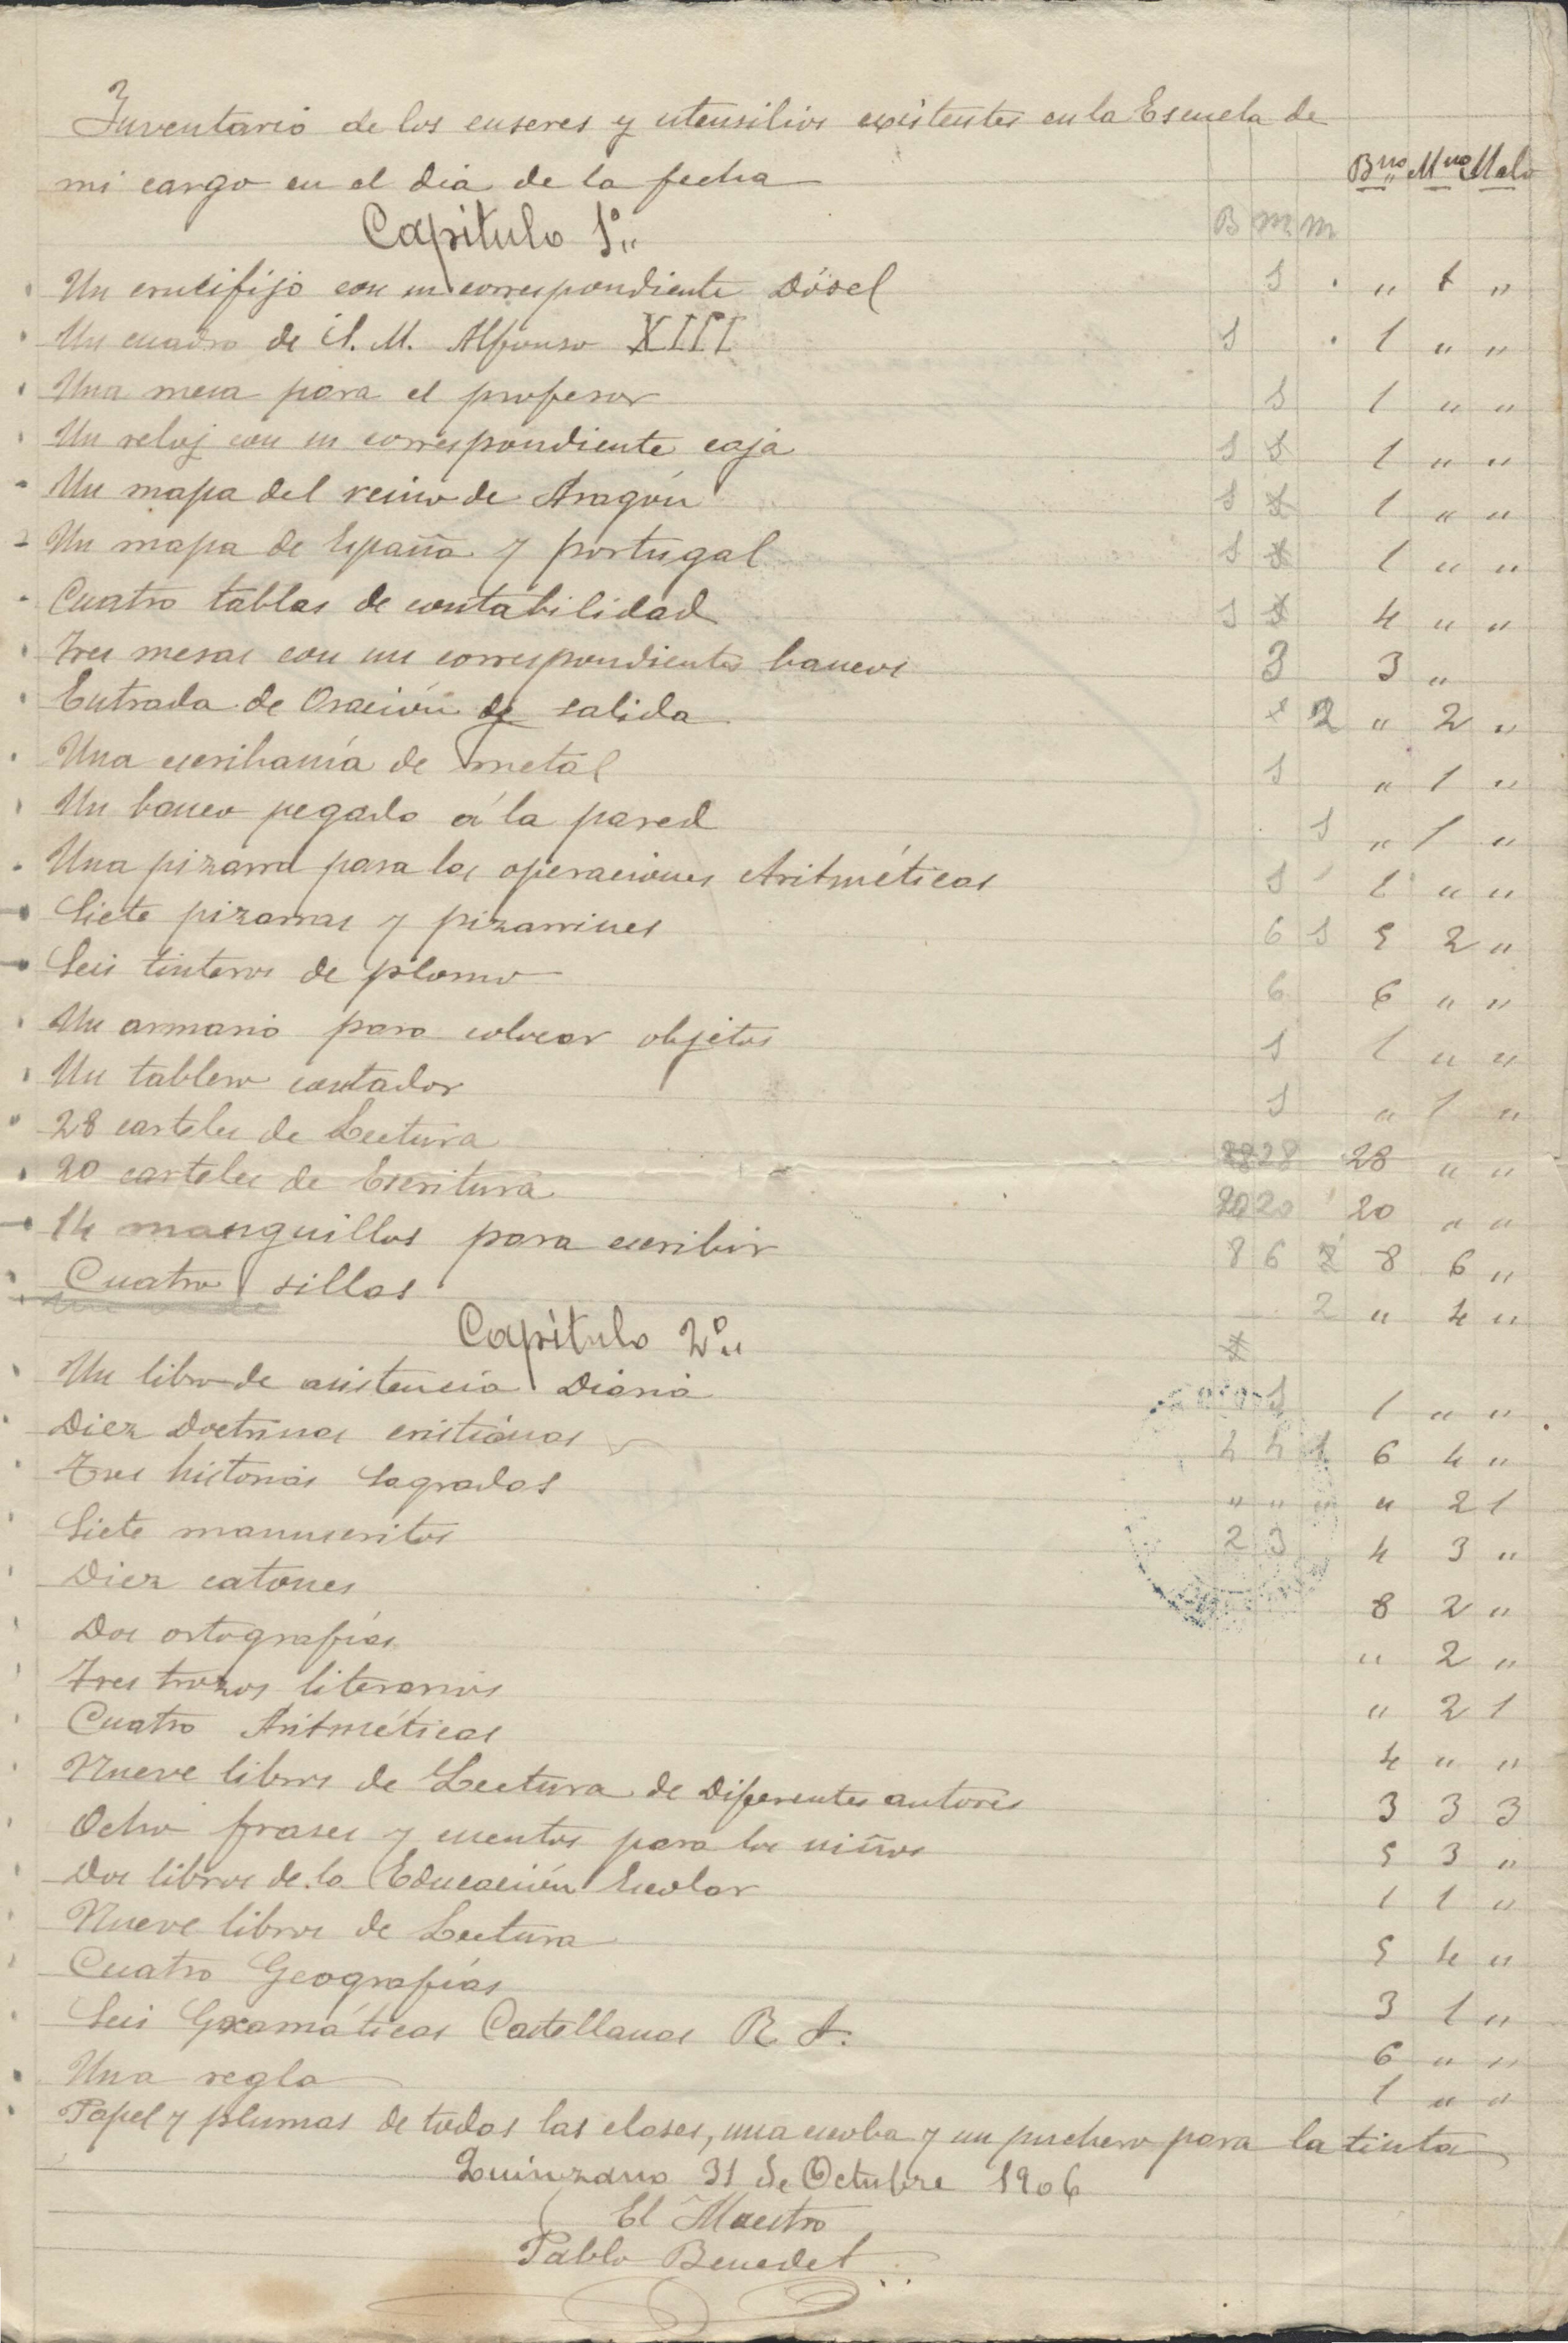 Inventario de los enseres y utensilios existentes en la Escuela de
mi cargo en el dia de la fecha
Bno Mno Malo
Capítulo 1º
B M m
Un crucifijo con su correspondiente dósel 1 " 1 "
Un cuadro de S. M. Alfonso XIII 1 1 " "
Una mesa para el profesor 1 1 " "
Un reloj con su correspondiente caja 1 1 1 " "
Un mapa del reino de Aragón 1 1 1 " "
Un mapa de España y portugal 1 1 1 " "
Cuatro tablas de contabilidad 1 1 4 " "
Tres mesas con sus correspondientes bancos 3 3 "
Entrada de Oración de salida 2 " 2 "
Una escribanía de metal 1 " 1 "
Un banco pegado á la pared 1 " 1 "
Una pizarra para las operaciones Aritméticas 1 1 " "
Siete pizarras y pizarrines 6 1 5 2 "
Seis tinteros de plomo 6 6 " "
Un armario para colocar objetos 1 1 " "
Un tablero contador 1 " 1 "
28 carteles de Lectura 28 28 28 " "
20 carteles de Escritura 20 20 20 " "
14 manguillos para escribir 8 6 8 6 "
Cuatro sillas 2 " 4 "
Capítulo 2º
Un libro de asistencia Diaria 1 1 " "
Diez Doctrinas cristianas 4 4 1 6 4 "
Tres historias Sagradas " " " " 2 1
Siete manuscritos 2 3 4 3 "
Diez catones 8 2 "
Dos ortografías " 2 "
Tres trozos literarios " 2 1
Cuatro Aritméticas 4 " "
Nueve libros de Lectura de Diferentes autores 3 3 3
Ocho frases y cuentos para los niños 5 3 "
Dos libros de la Educación Escolar 1 1 "
Nueve libros de Lectura 5 4 "
Cuatro Geografías 3 1 "
Seis Gramáticas Castellanas R. A. 6 " "
Una regla 1 " "
Papel y plumas de todas las clases, una escoba y un puchero para la tinta
Quinzano 31 de Octubre 1906
El Maestro
Pablo Benedet